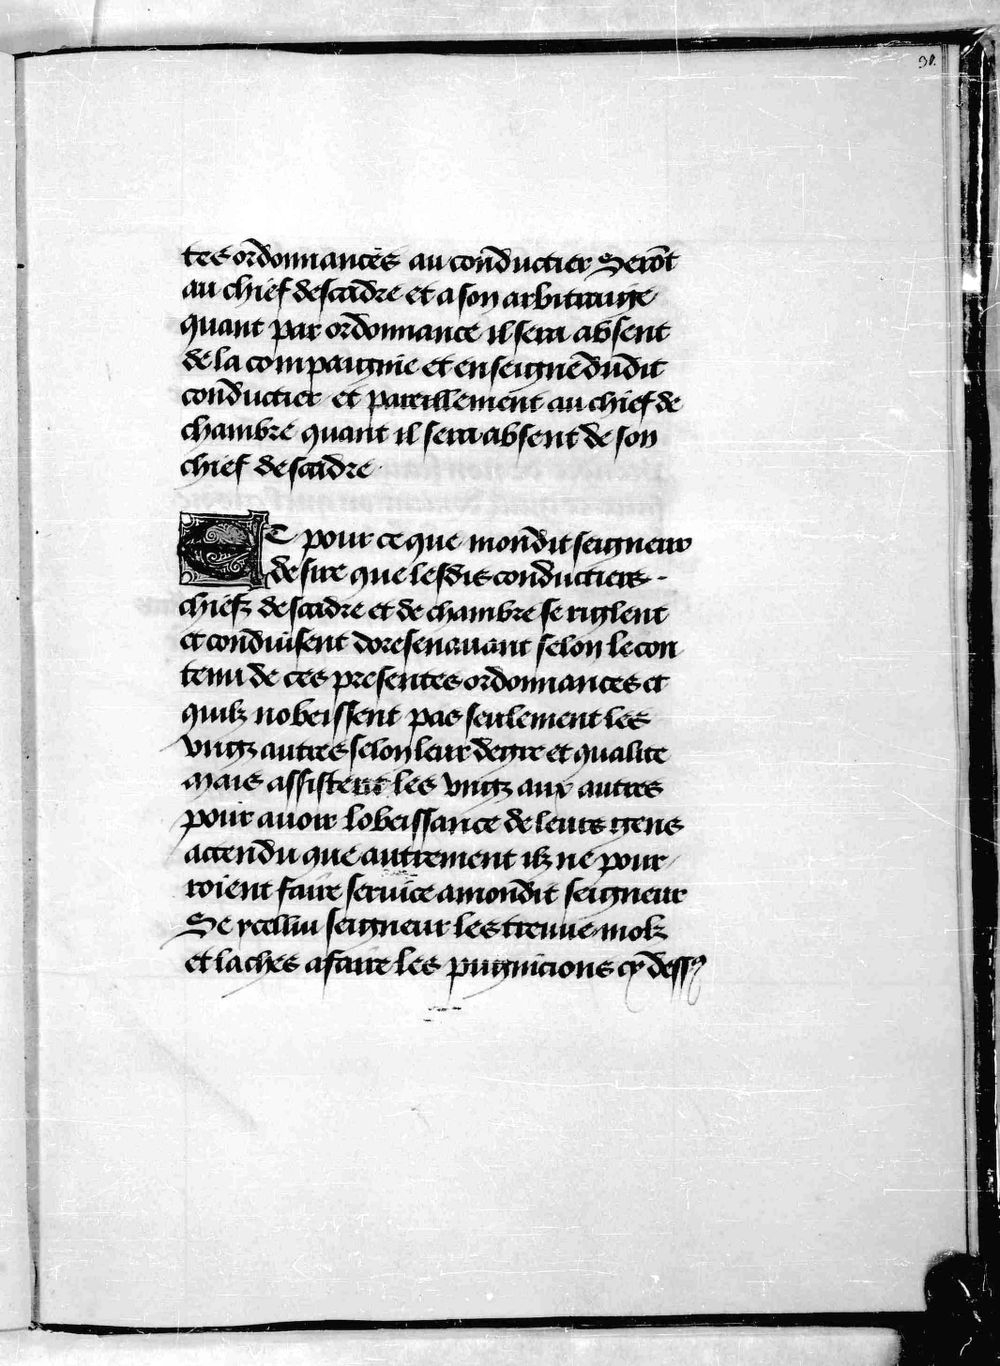 31.
tes ordonnances au conductier Serõt
au chief descadre et a son arbitraige
quant par ordonnance il sera absent
de la compaignie et enseigne dudit
conductier et pareillement au chief de
chambre quant il sera absent de son
chief descadre
Et pour ce que mondit seigneur
desire que lesdis conductiers
chiefz descadre et de chambre se riglent
et conduisent doresenavant selon le con
tenu de ces presentes ordonnances et
quilz nobeissent pas seulement les
vngz autres selon leur degre et qualite
Mais assistent les vngz aux autres
pour auoir lobeissance de leurs gens
attendu que autrement ilz ne pour
roient faire seruice a mondit seigneur
Se ycelluy seigneur les treuue molz
et laches a faire les pugnicions cy dessꝰ